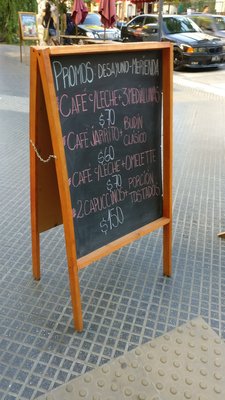 PROMOS DESAYUNO-MERIENDA
*CAFE C/LECHE+3 MEDIALUNAS
$70
*CAFÉ JARRITO+ BUDIN CLÁSICO
$60
*CAFE C/LECHE+OMELETTE
$70
*2 CAPUCCINOS+ PORCIÓN TOSTADOS
$150